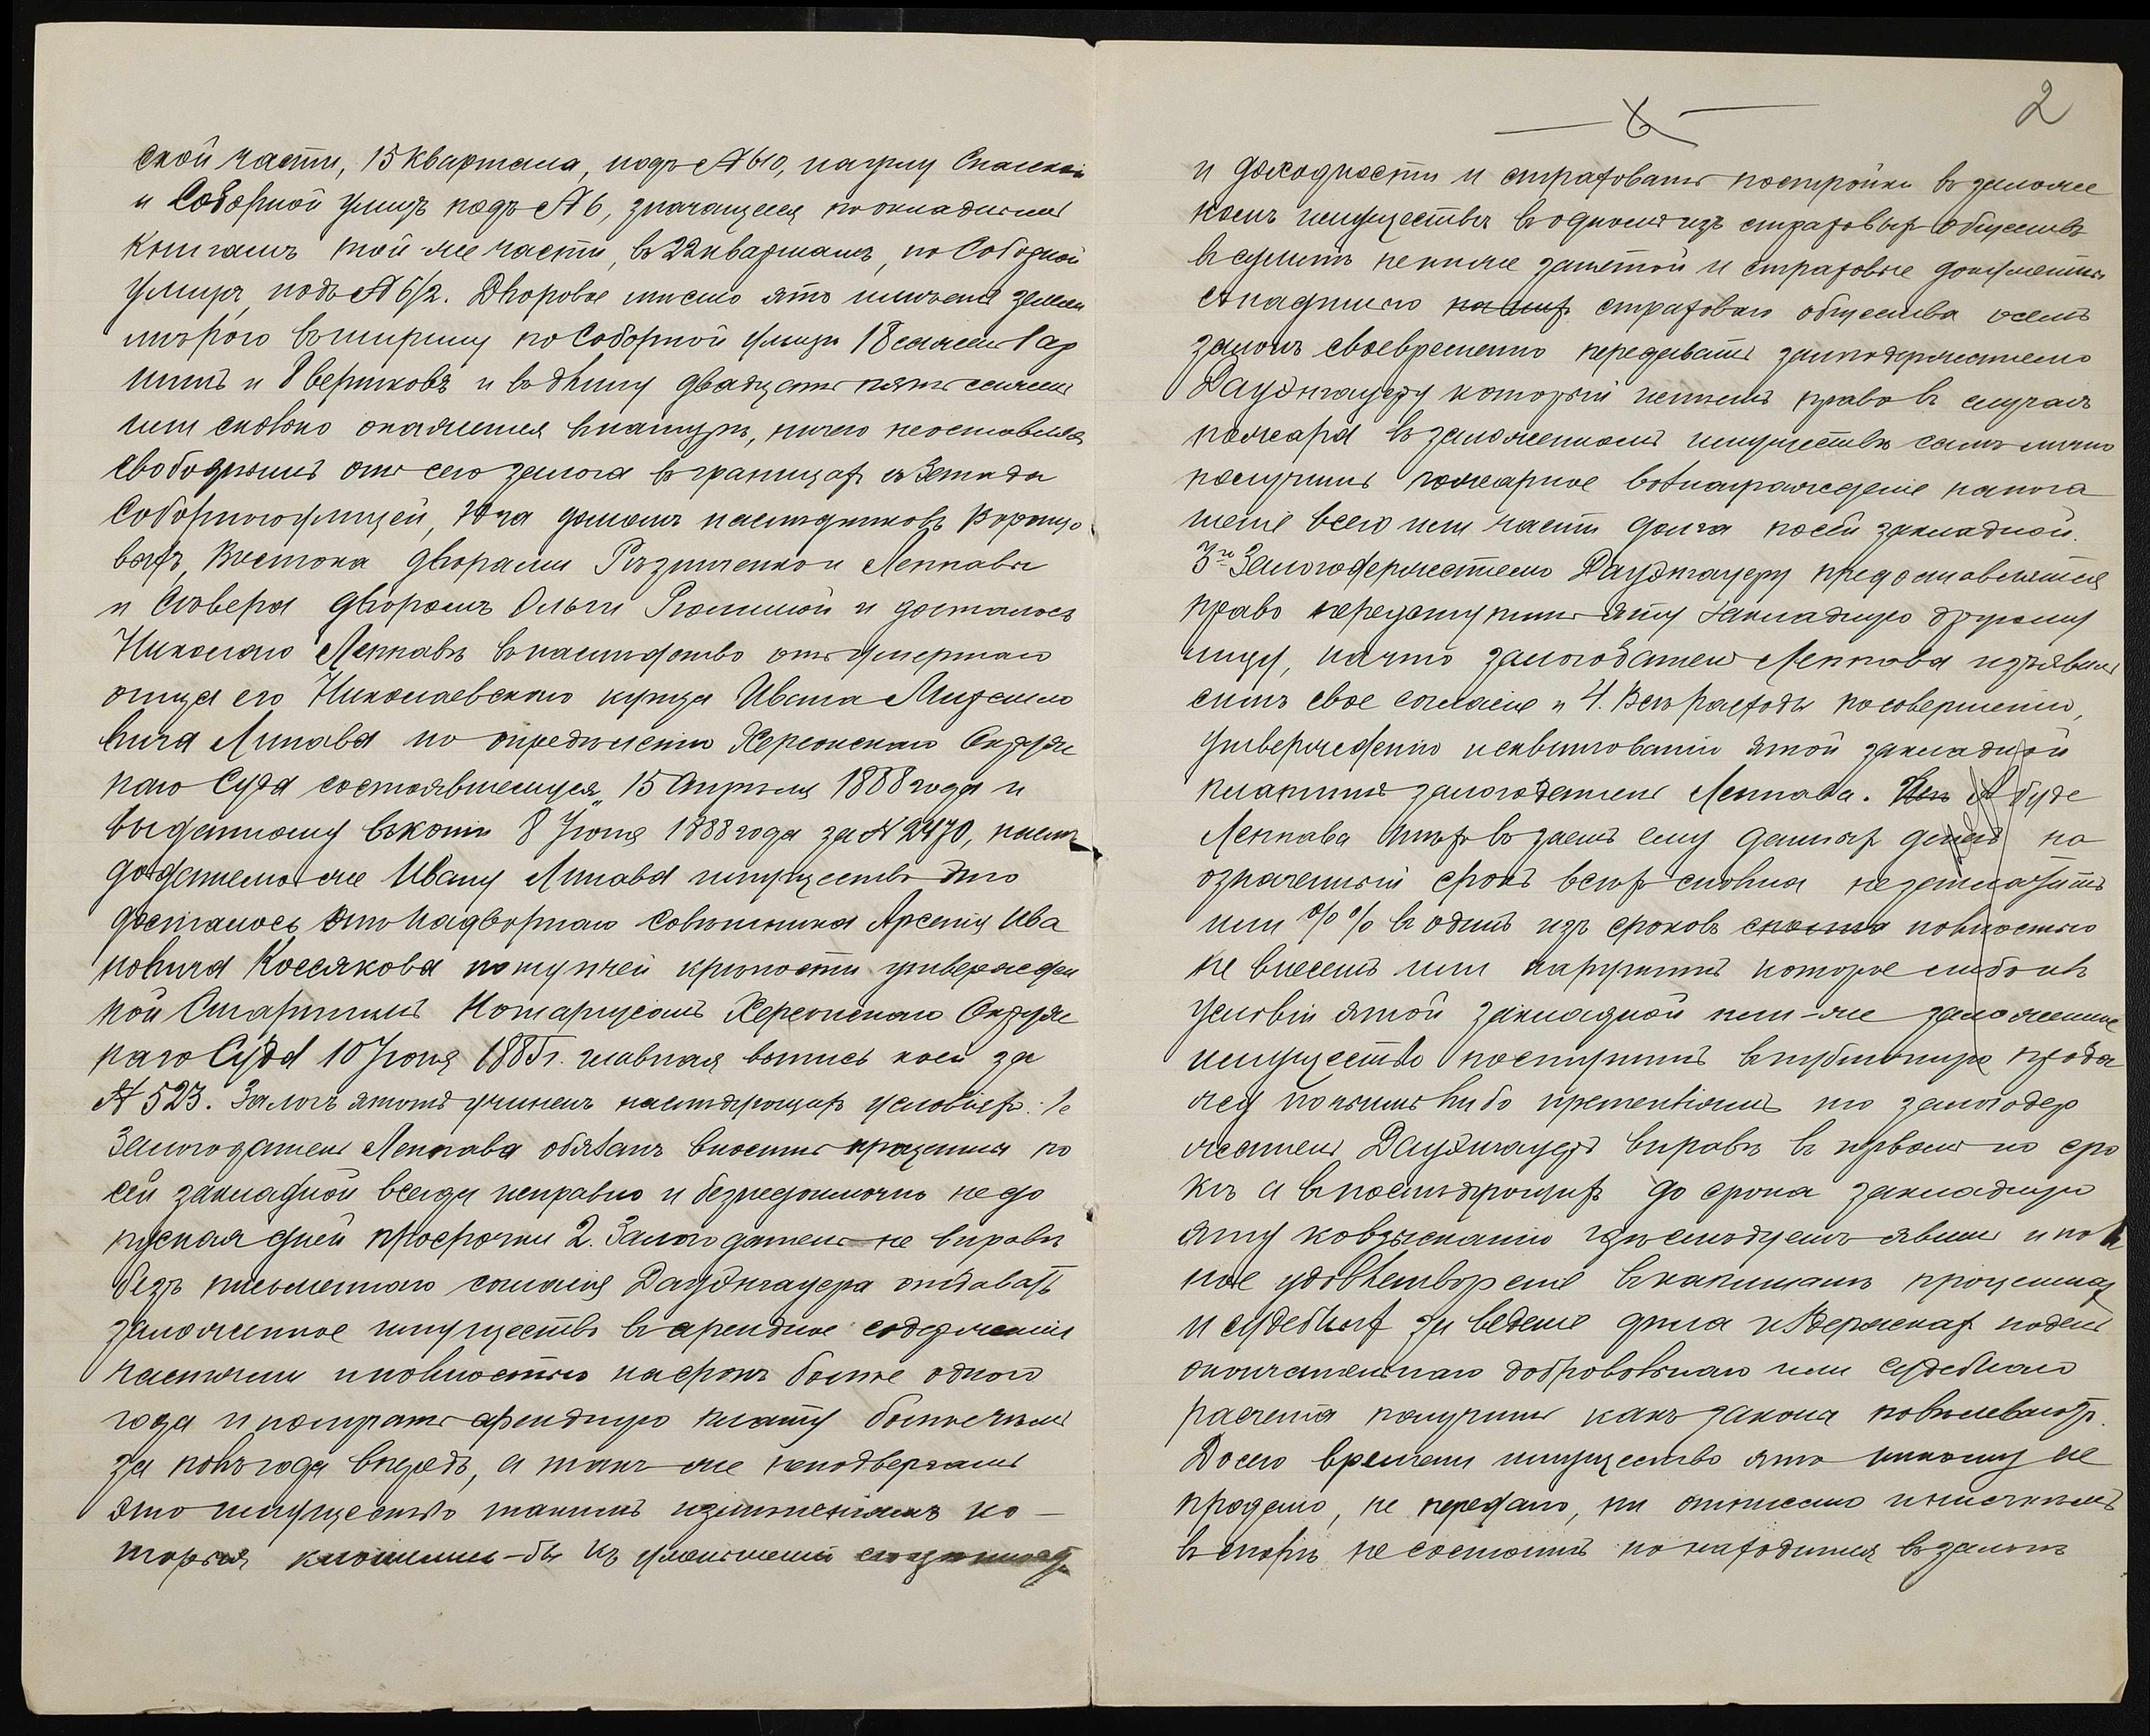 ской части, 15 квартала, подъ № 610, на углу Спасской
и Соборной улицъ подъ № 6, значащееся по окладнымъ
книгамъ той-же части, въ 22 кварталѣ, по Соборной
улицѣ, подъ № 6/2. Дворовое мѣсто это имѣетъ земли
мѣрою въ ширину по Соборной улицѣ 18 сажень 1 ар
шинъ и 8 вершковъ и въ длину двадцать пять сажень
или сколько окажется въ натурѣ, ничего не оставляя
свободнымъ отъ сего залога въ границахъ съ Запада
Соборною улицей, Юга домомъ наслѣдниковъ Воронцо
выхъ, Востока дворами Рѣзниченко и Леппавы
и Сѣвера дворомъ Ольги Рюминой и досталось
Николаю Леппавѣ въ наслѣдство отъ умершаго
отца его Николаевскаго купца Ивана Михайло
вича Липава по опредѣленію Херсонскаго Окруж
наго Суда состоявшемуся 15 Апрѣля 1888 года и
выданному въ копіи 8 Іюня 1888 года за № 2470, наслѣ
додателю же Ивану Липава имущество это
досталось отъ Надворнаго Совѣтника Арсенія Ива
новича Коссякова по купчей крѣпости утвержден
ной Старшимъ Нотаріусомъ Херсонскаго Окруж
наго Суда 10 Іюня 1885 г. главная выпись коей за
№ 523. Залогъ этотъ учиненъ на слѣдующихъ условіяхъ: 1е
Залогодатель Леппава обязанъ вносить проценты по
сей закладной всегда исправно и безнедоимочно не до
пуская дней просрочки 2. Залогодатель не вправѣ
безъ письменнаго согласія Даузнгауера отдавать
заложенное имущество въ арендное содержаніе
частями и полностью на срокъ болѣе одного
года и получать арендную плату болѣе чѣмъ
за полъ года впередъ, а такъ же не подвергать
это имущество такимъ измѣненіямъ ко-
торыя клонились-бы къ уменьшенію
2
и доходности и страховать постройки въ заложен
номъ имуществѣ въ одномъ изъ страховыхъ обществъ
въ суммѣ не ниже занятой и страховые документы
съ надписью страховаго общества о семъ
залогѣ своевременно передавать залогодержателю
Даузнгауеру который имѣетъ право въ случаѣ
пожара въ заложенномъ имуществѣ самъ лично
получить пожарное вознагражденіе на пога
шеніе всего или части долга по сей закладной.
3е Залогодержателю Даузнгауеру предоставляется
право переуступить эту закладную другому
лицу, на что залогодатель Леппава изъявилъ
симъ свое согласіе и 4. Всѣ расходы по совершенію,
утвержденію и сквитованію этой закладной
платитъ залогодатель Леппава. А буде
Леппава тѣхъ въ заемъ ему данныхъ денегъ на
означенный срокъ всѣхъ сполна не заплатитъ
или %% въ одинъ изъ сроковъ полностью
не внесетъ или нарушитъ которое либо изъ
условій этой закладной или-же заложенное
имущество поступитъ въ публичную прода
жу по чьимъ либо претензіямъ то залогодер
жатель Даузнгауеръ вправѣ въ первомъ по сро
кѣ а въ послѣдующихъ до срока закладную
эту ко взысканію гдѣ слѣдуетъ явить и пол
ное удовлетвореніе въ капиталѣ процентахъ
и судебныхъ за веденіе дѣла издержкахъ по день
окончательнаго добровольнаго или судебнаго
расчета получить какъ закона повелѣваютъ.
До сего времени имущество это никому не
продано, не передано, ни отписано ни за чѣмъ
въ спорѣ не состоитъ но находится въ залогѣ